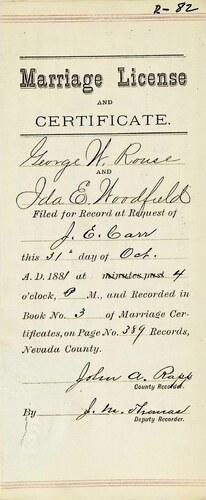 R-82
Marriage License
AND
CERTIFICATE.
George W. Rouse
AND
Ida E. Woodfield
Filed for Record at Request of
J. E. Carr
this 31st day of Oct.
A. D. 1881 at minutes past 4
o'clock, P M., and Recorded in
Book No. 3 of Marriage Cer-
tificates, on Page No. 389 Records,
Nevada County.
John A. Rapp
County Recorder.
By J. M. Thomas
Deputy Recorder.